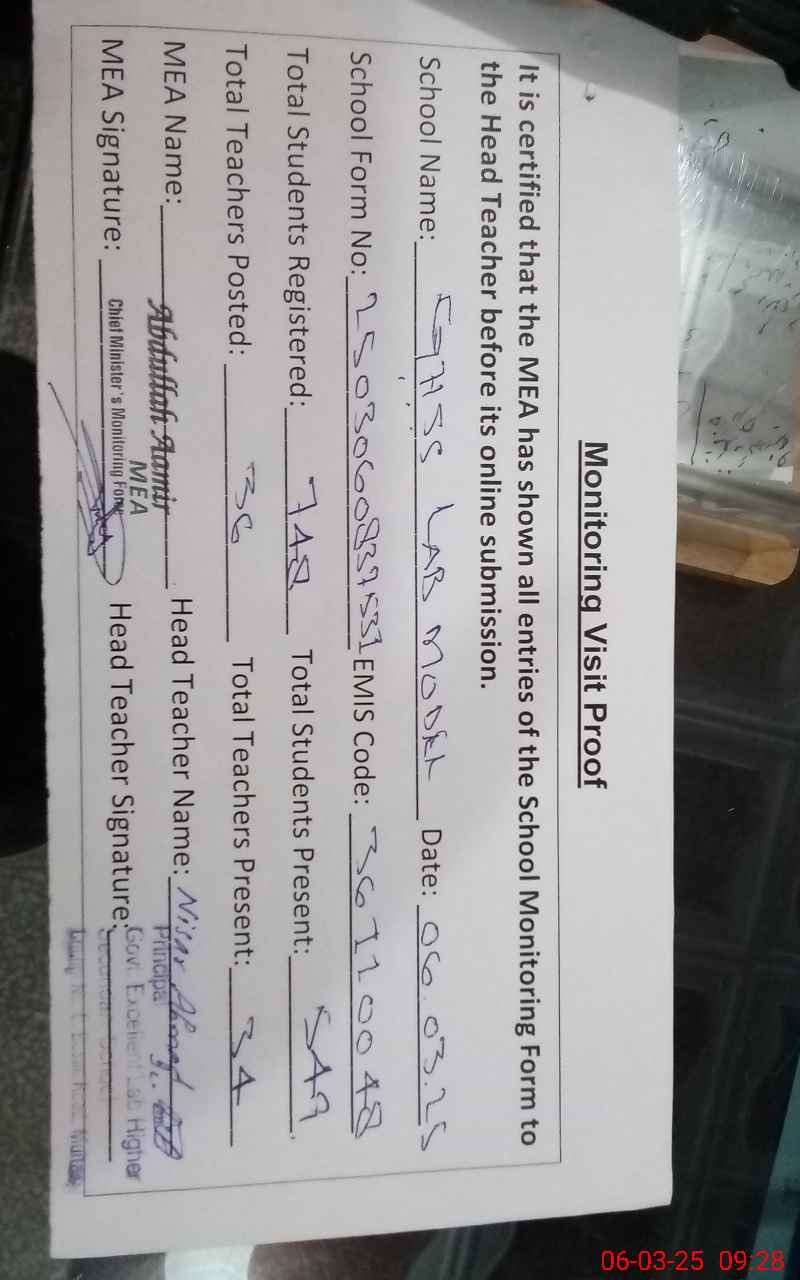 Monitoring Visit Proof
It is certified that the MEA has shown all entries of the School Monitoring Form to
the Head Teacher before its online submission.
School Name: GHSS LAB MODEL Date: 06.03.25
School Form No: 2503060839531 EMIS Code: 36110048
Total Students Registered: 748 Total Students Present: 549
Total Teachers Posted: 36 Total Teachers Present: 34
MEA Name: Abdullah Aamir Head Teacher Name: Nisar Ahmad
MEA
Principal
MEA Signature: Chief Minister's Monitoring Force Head Teacher Signature:
Govt. Excellent Lab Higher
Secondary School
Road Multan
06-03-25 09:28